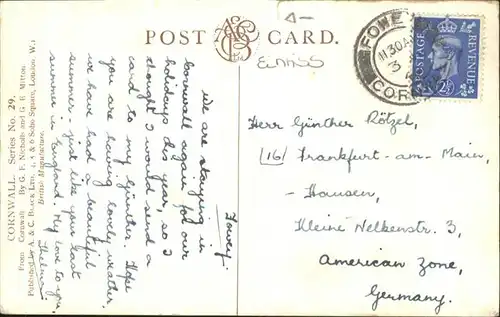 POST CARD.
Fowey.
We are staying in
Cornwall again for our
holidays this year, so I
thought I would send a
card to my Günther. Hope
you are having lovely weather.
We have had a beautiful
summer - just like your last
summer in England. My love to you,
Thelma
CORNWALL. Series No. 29.
From Cornwall. By G. F. Nicholls and G. E. Mitton.
Published by A. & C. BLACK LTD., 4, 5 & 6 Soho Square, London, W.1
British Manufacture.
FOWEY
11 30 A
3
CORN
POSTAGE
REVENUE
2½
Herr Günther Rötzel,
(16) Frankfurt-am-Main,
- Hausen,
Kleine Nelkenstr. 3,
American Zone,
Germany.